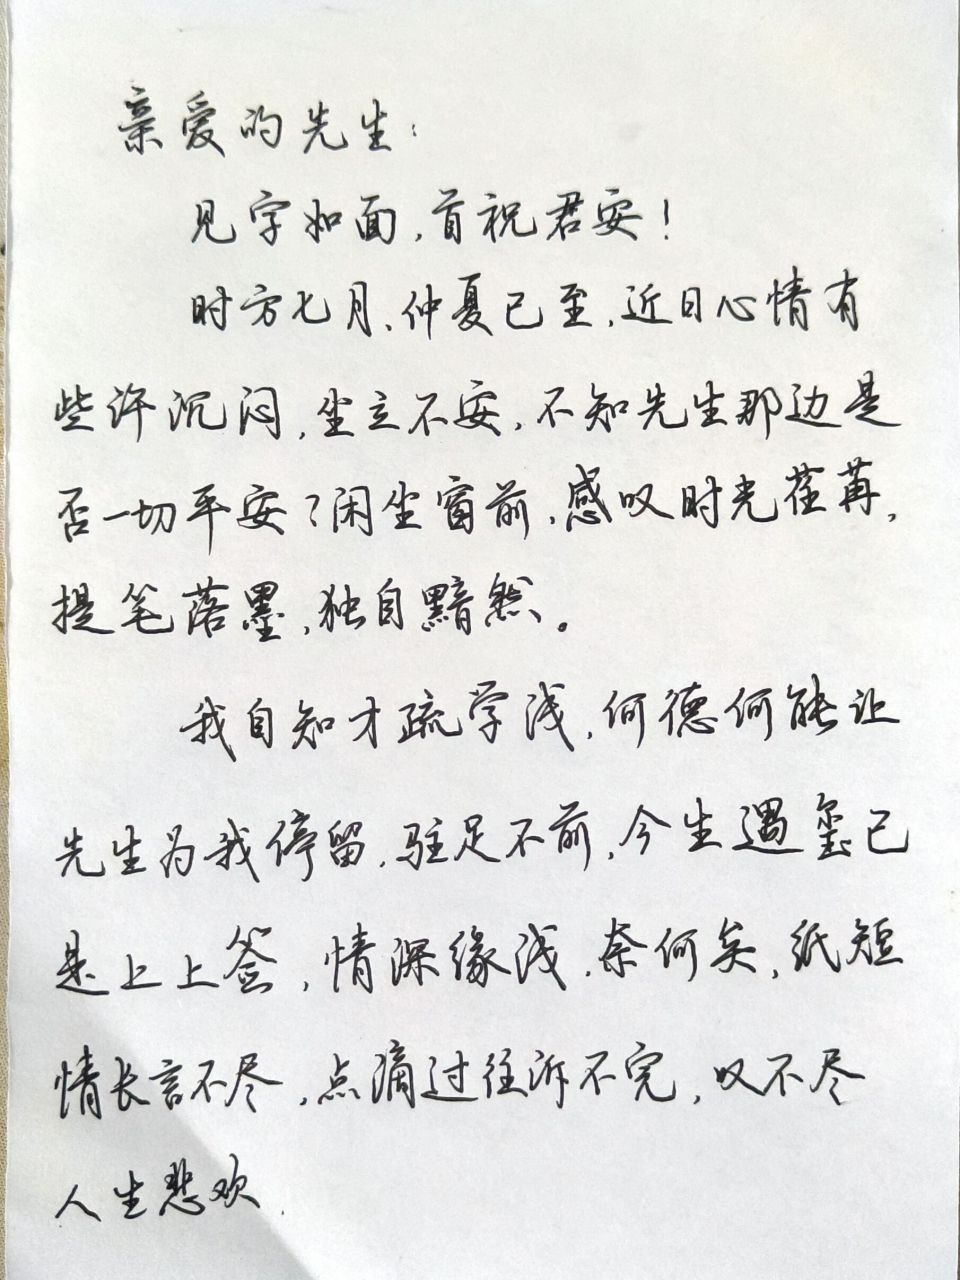 亲爱的先生:
见字如面,首祝君安!
时方七月、仲夏已至,近日心情有
些许沉闷,坐立不安,不知先生那边是
否一切平安?闲坐窗前,感叹时光荏苒,
提笔落墨,独自黯然。
我自知才疏学浅,何德何能让
先生为我停留,驻足不前,今生遇玺已
是上上签,情深缘浅,奈何矣,纸短
情长言不尽,点滴过往诉不完,叹不尽
人生悲欢.